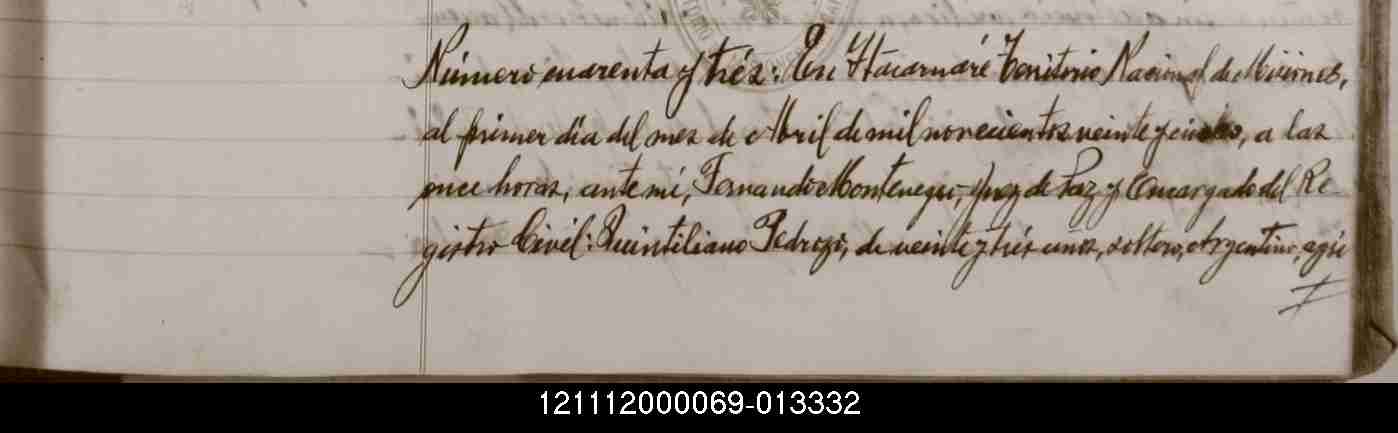 Número cuarenta y trés: En Itacaruaré Territorio Nacional de Misiones,
al primer dia del mes de Abril de mil novecientos veinte y cinco, a las
once horas, ante mí, Fernando Montenegro, Juez de Paz y Encargado del Re-
gistro Civil: Quintiliano Pedrozo, de veinte y trés años, soltero, Argentino, agri
121112000069-013332